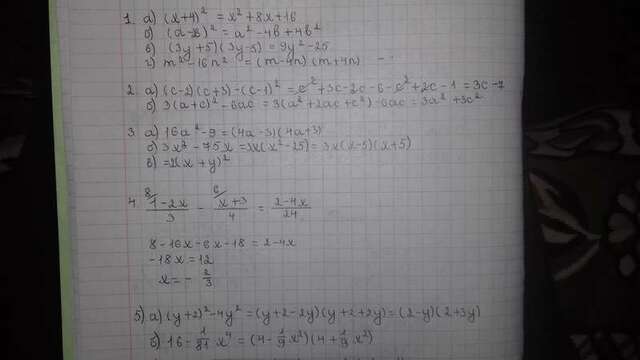 1 а) (x+4)² = x² + 8x + 16
б) (a-2b)² = a² - 4b + 4b²
в) (3y+5)(3y-5) = 9y² - 25
г) m² 16n² = (m-4n)(m+4n)
2 а) (c-2)(c+3)-(c-1)² = c² + 3c - 2c - 6 - c² + 2c - 1 = 3c - 7
б) 3(a+c)² - 6ac = 3(a² + 2ac + c²) - 6ac = 3a² + 3c²
3 а) 16a² - 9 = (4a-3)(4a+3)
б) 3x³ - 75x = 3x(x² - 25) = 3x(x-5)(x+5)
в) = 2(x+y)²
4 8/ (1-2x)/3 - 6/ (x+3)/4 = (2-4x)/24
8 - 16x - 6x - 18 = 2 - 4x
-18x = 12
x = - 2/3
5) а) (y+2)² - 4y² = (y+2-2y)(y+2+2y) = (2-y)(2+3y)
б) 16 - 1/81 x⁴ = (4 - 1/9 x²)(4 + 1/9 x²)